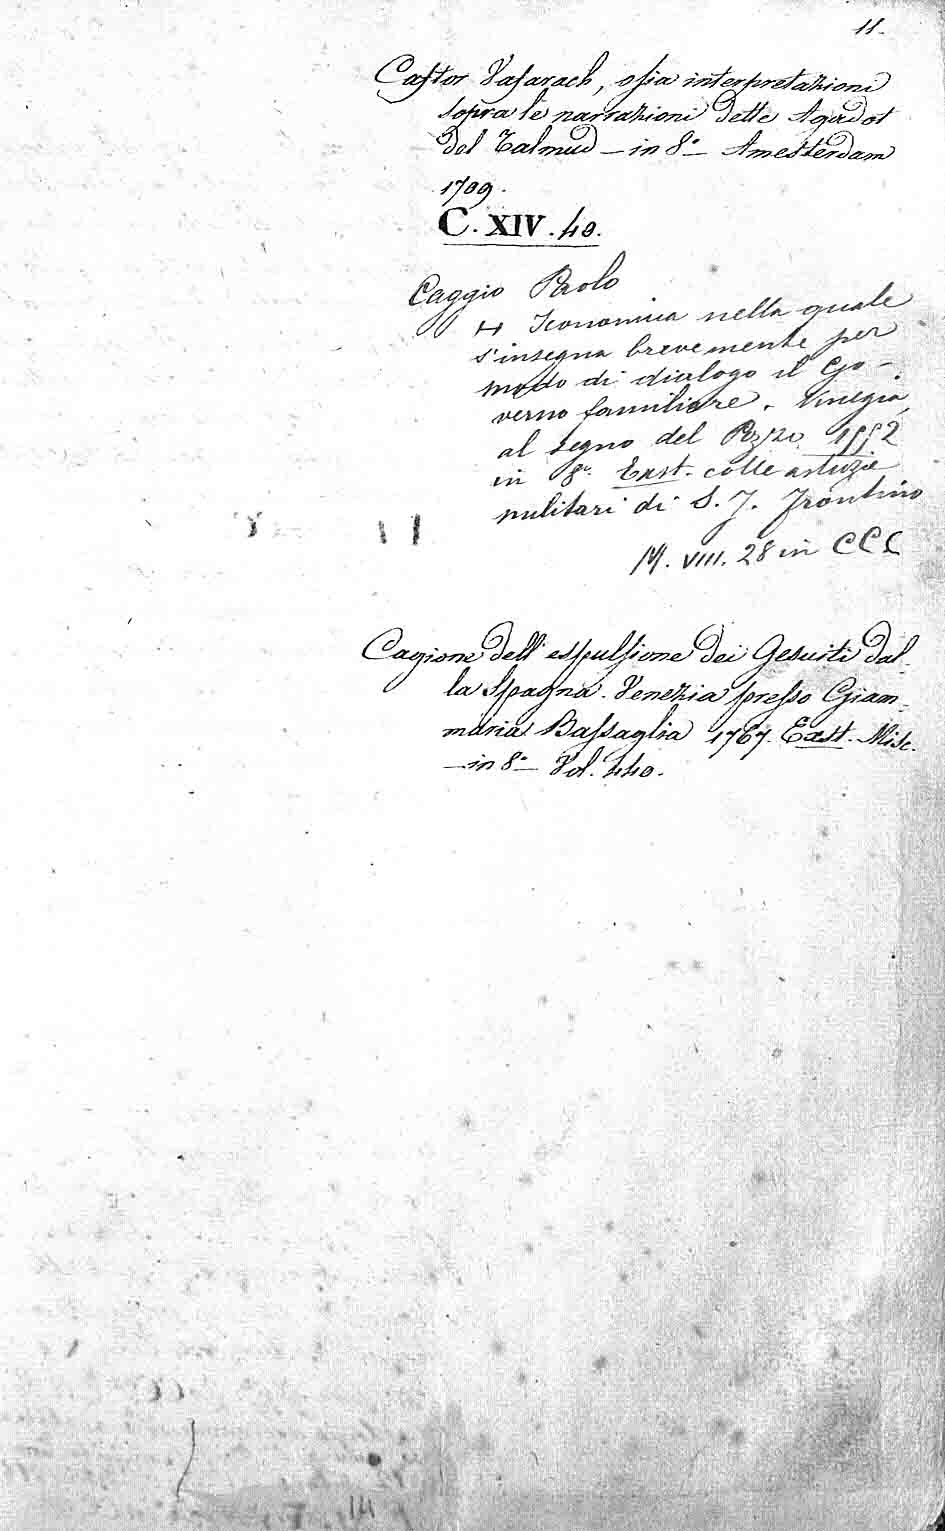 11.
Caftor Vafarach, ossia interpretazioni
sopra le narrazioni dette Agadot
del Talmud – in 8º – Amesterdam
1709.
C. XIV. 40.
Caggio Paolo
Iconomica nella quale
s'insegna brevemente per
modo di dialogo il Go-
verno familiare. Vinegia,
al segno del Pozzo 1552
in 8º. Exst. colle astuzie
militari di S. J. Frontino
M. VIII. 28 in CCC
Cagione dell' espulsione dei Gesuiti dal-
la Spagna. Venezia presso Giam-
maria Bassaglia 1767. Exst. Misc.
– in 8º – Vol. 440.